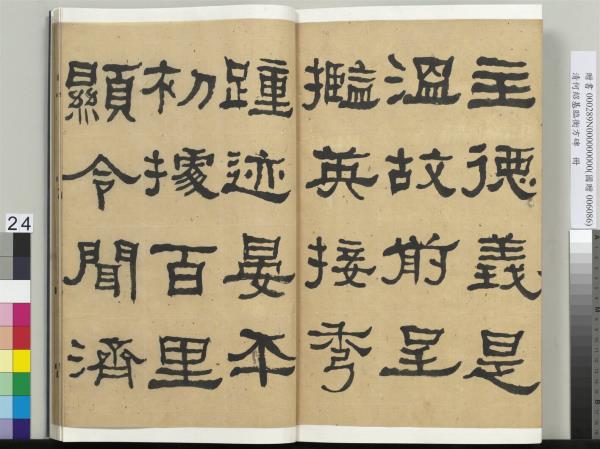 主德義是
溫故前呈
攬英接秀
踵迹晏平
初據百里
顯令聞濟
贈書 000289N000000000(國贈 006086)
清何紹基臨衡方碑 冊
24